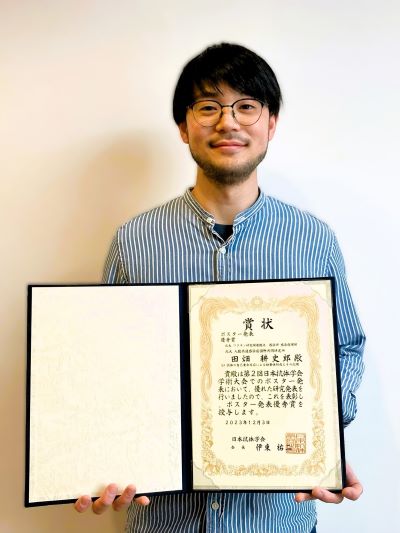 賞状
ポスター発表
優秀賞
田畑 耕史郎殿
貴殿は第2回日本抗体学会
学術大会でのポスター発
表において、優れた研究発表を
行いましたので、これを表彰し
ポスター発表優秀賞を
授与します。
2023年12月3日
日本抗体学会
会長 伊東 祐